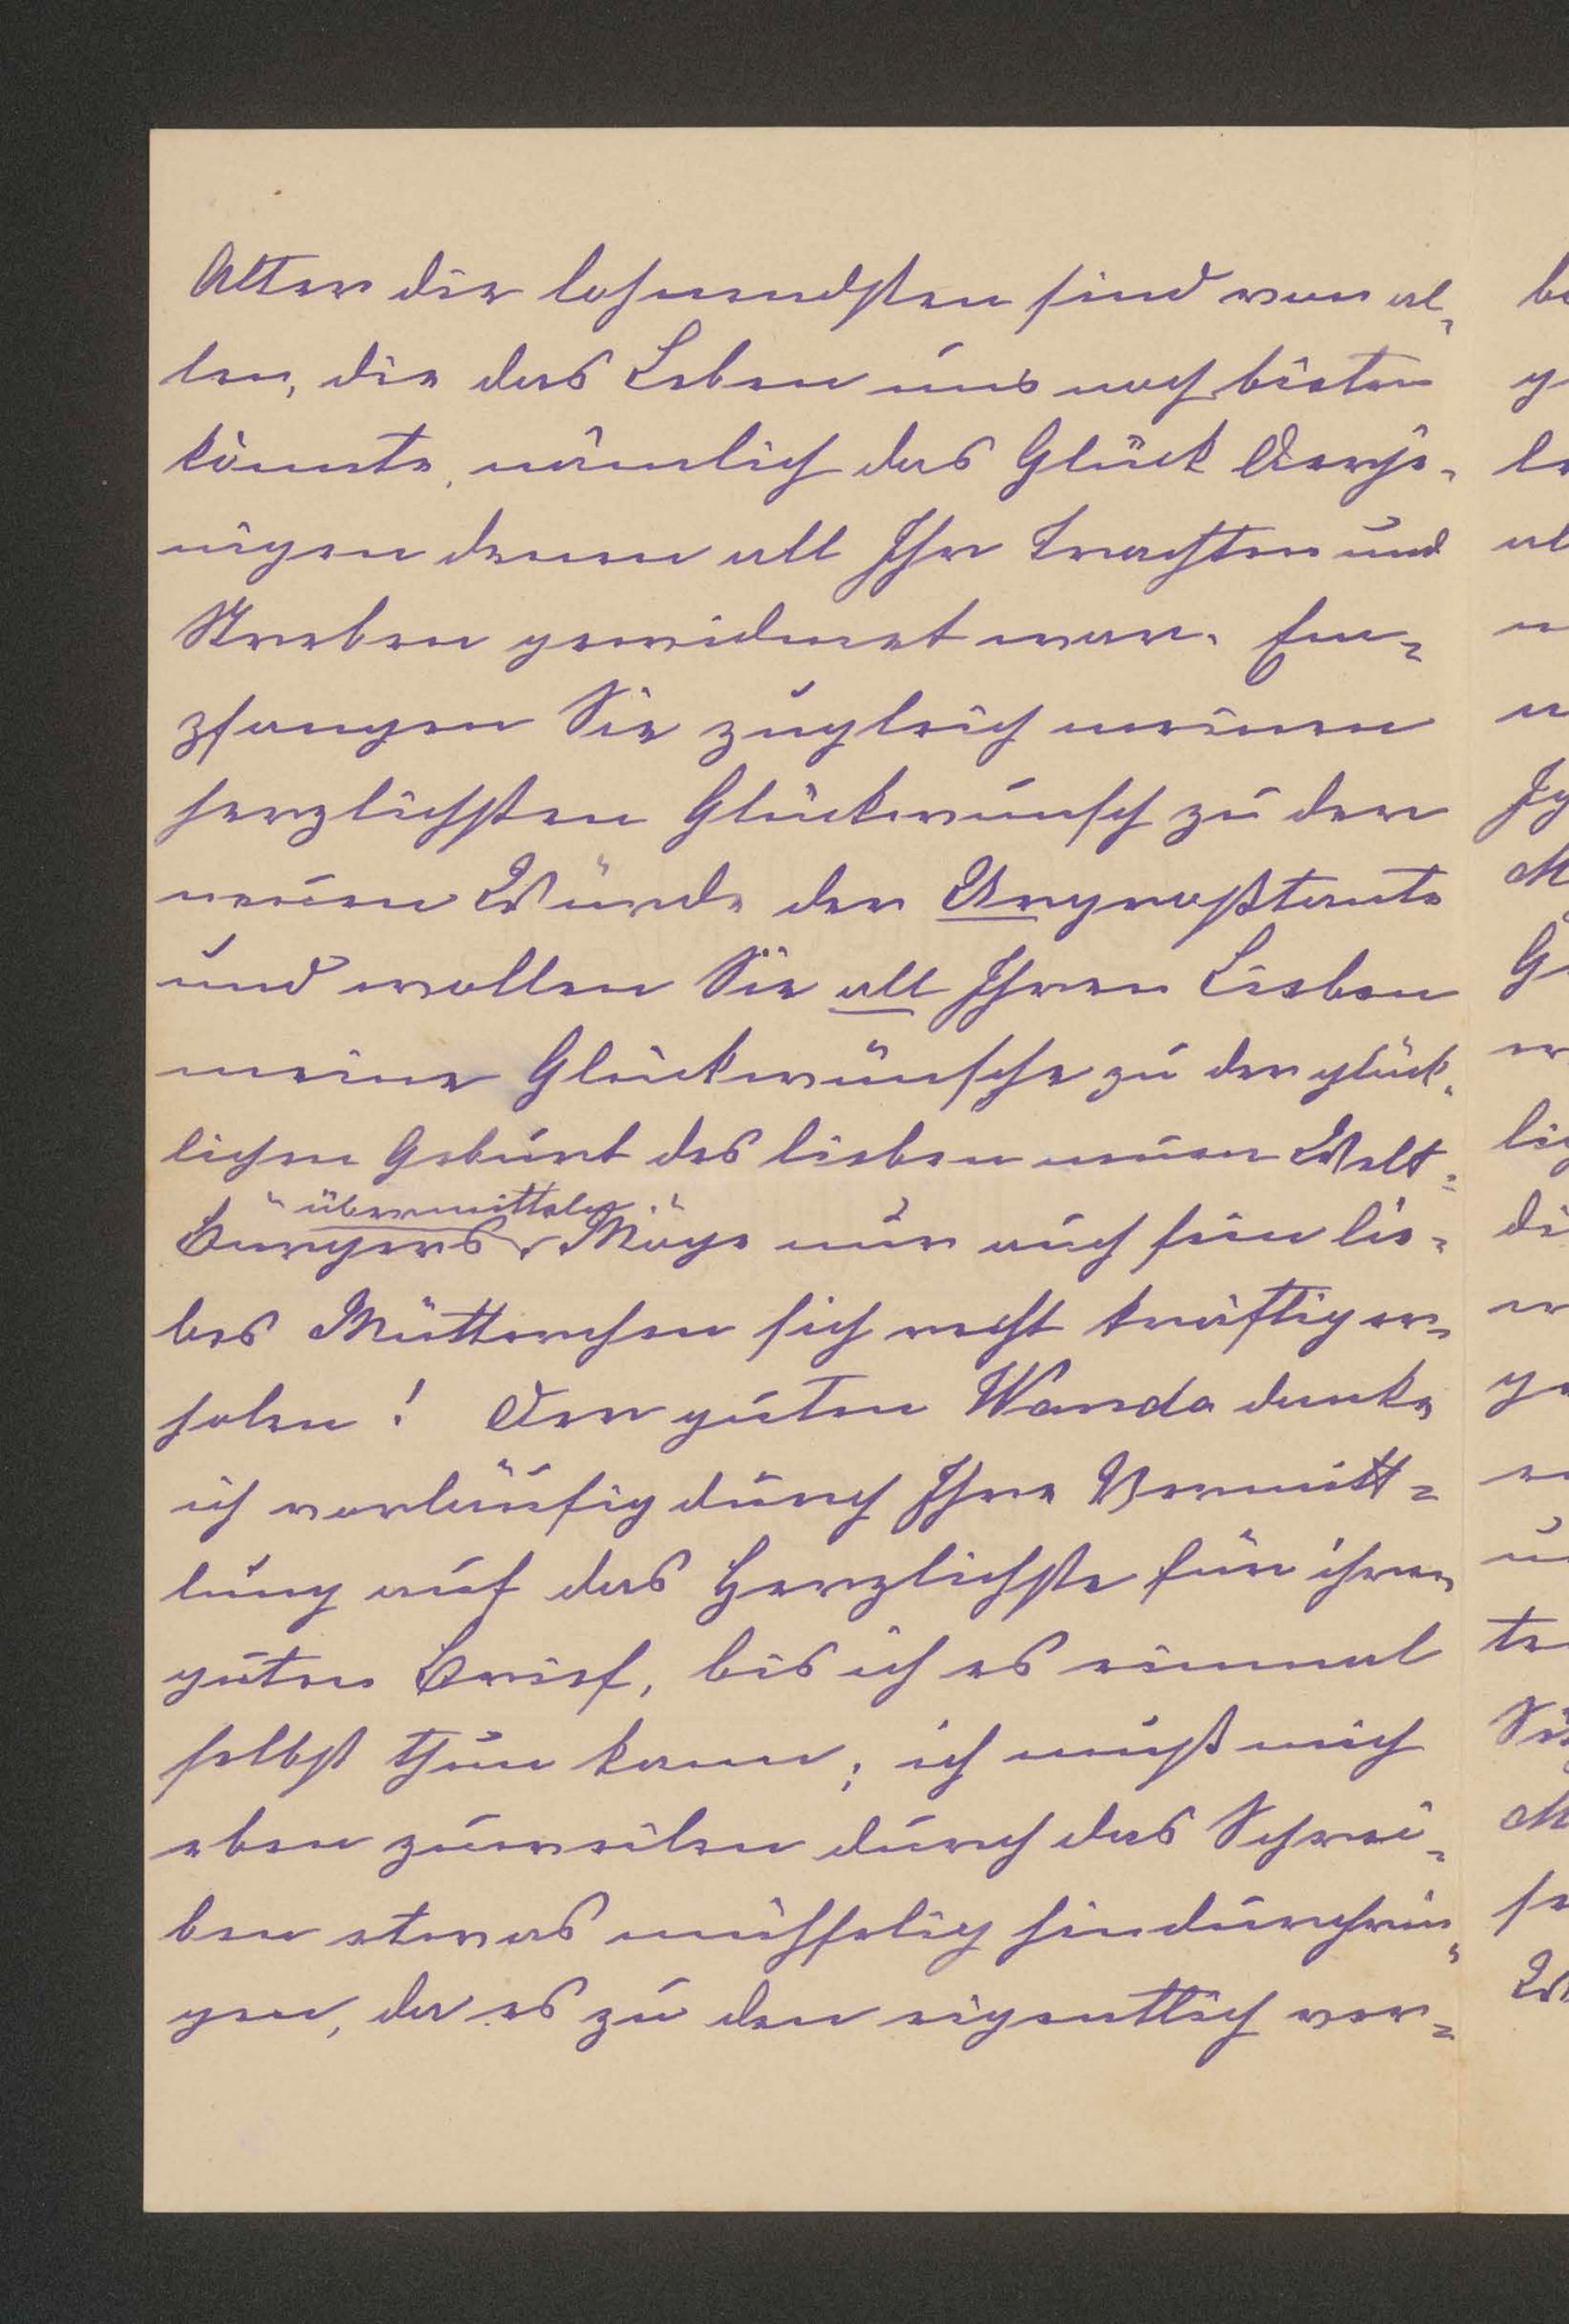 Alter die lohnendsten sind von al-
len, die das Leben uns noch bieten
könnte, nämlich das Glück Derje-
nigen denen all Ihr Trachten und
Streben gewidmet war. Em-
pfangen Sie zugleich meinen
herzlichsten Glückwunsch zu der
neuen Würde der Urgroßtante
und wollen Sie all Ihren Lieben
meine Glückwünsche zu der glück-
lichen Geburt des lieben neuen Welt-
übermitteln
bürgers. Möge nur auch sein lie-
bes Mütterchen sich recht kräftig er-
holen! Der guten Wanda danke
ich vorläufig durch Ihre Vermitt-
lung auf das Herzlichste für ihren
guten Brief, bis ich es einmal
selbst thun kann; ich muß mich
eben zuweilen durch das Schrei-
ben etwas mühselig hindurchrin-
gen, da es zu den eigentlich ver-